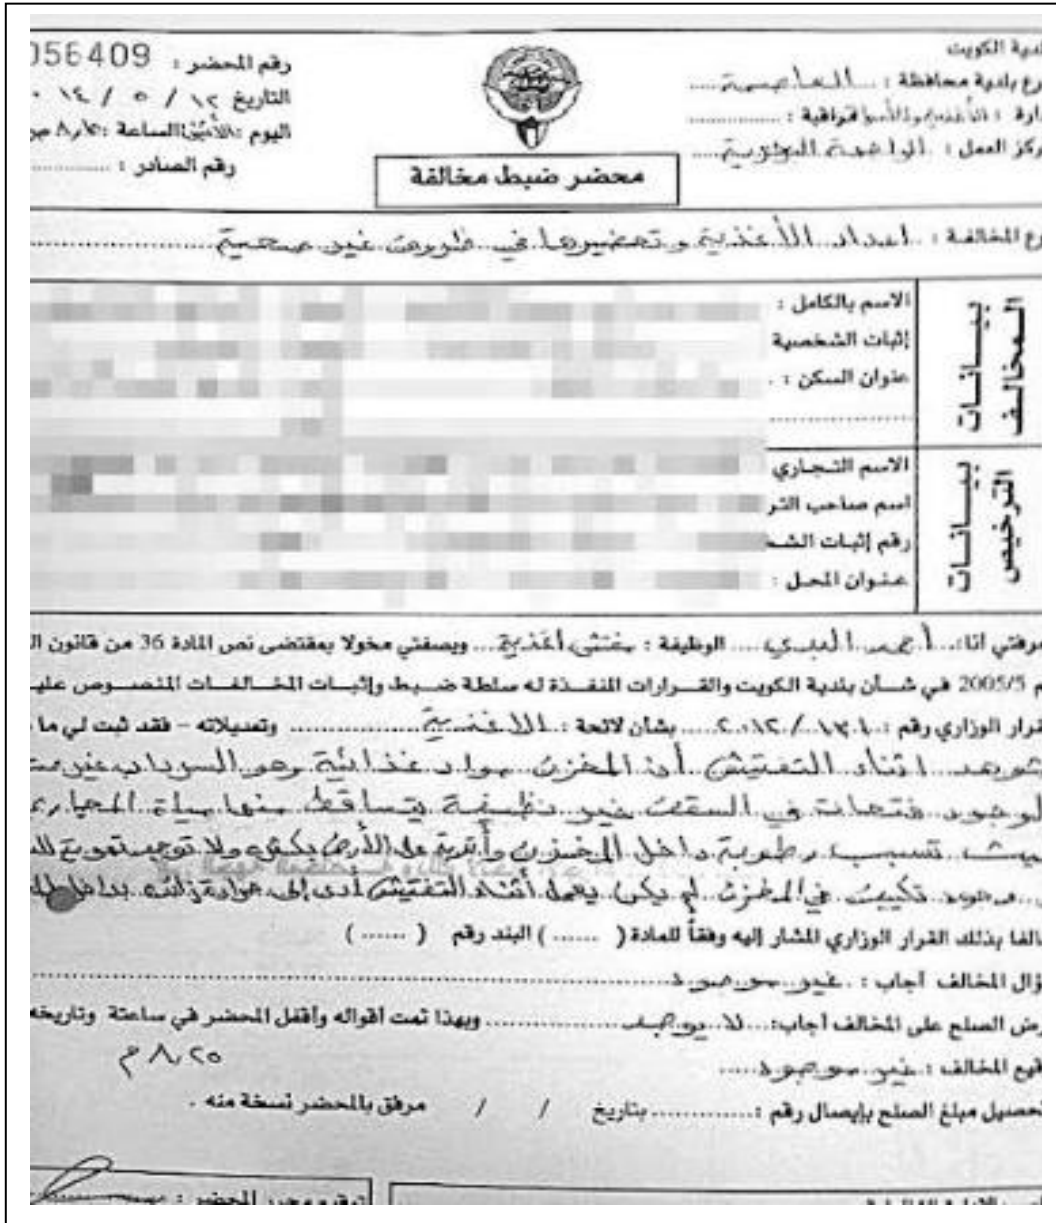 لدية الكويت
رع بلدية محافظة : العاصمة
دارة : الأغذية والأسواق
راقية :
ركز العمل :
رقم المحضر : 056409
التاريخ ١٢ / ٥ / ١٤
اليوم : الأثنين الساعة :
رقم الصادر :
محضر ضبط مخالفة
وع المخالفة : اعداد الأغذية وتحضيرها في ظروف غير صحية
بيانات المخالف
الاسم بالكامل :
إثبات الشخصية
عنوان السكن :
بيانات الترخيص
الاسم التجاري
اسم صاحب التر
رقم إثبات الشخ
عنوان المحل :
مرفتي أنا: أحمد الوظيفة : مفتش أغذية ويصفتي مخولا بمقتضى نص المادة 36 من قانون ال
م 2005/5 في شأن بلدية الكويت والقرارات المنفذة له سلطة ضبط وإثبات المخالفات المنصوص عليـ
قرار الوزاري رقم : بشأن لائحة : الأغذية وتعديلاته – فقد ثبت لي ما
شوهد اثناء التفتيش أن المخزن مواد غذائية وهو السرداب غير
لوجود فتحات في السقف غير نظيفة يتساقط منها مياه المجاري
تسبب رطوبة داخل المخزن وأتربة على الأرض بكثرة ولا توجد تهوية
وجود تكييف في المخزن لم يكن يعمل أثناء التفتيش أدى إلى
الفا بذلك القرار الوزاري المشار إليه وفقاً للمادة ( ...... ) البند رقم ( ...... )
ؤال المخالف أجاب : غير موجود
رض الصلح على المخالف أجاب: لا يوجد وبهذا تمت أقواله وأقفل المحضر في ساعتة وتاريخه
٨,٢٥ م
قيع المخالف : غير موجود
تحصيل مبلغ الصلح بإيصال رقم : بتاريخ / / مرفق بالمحضر نسخة منه .
توقيع محرر المحضر :